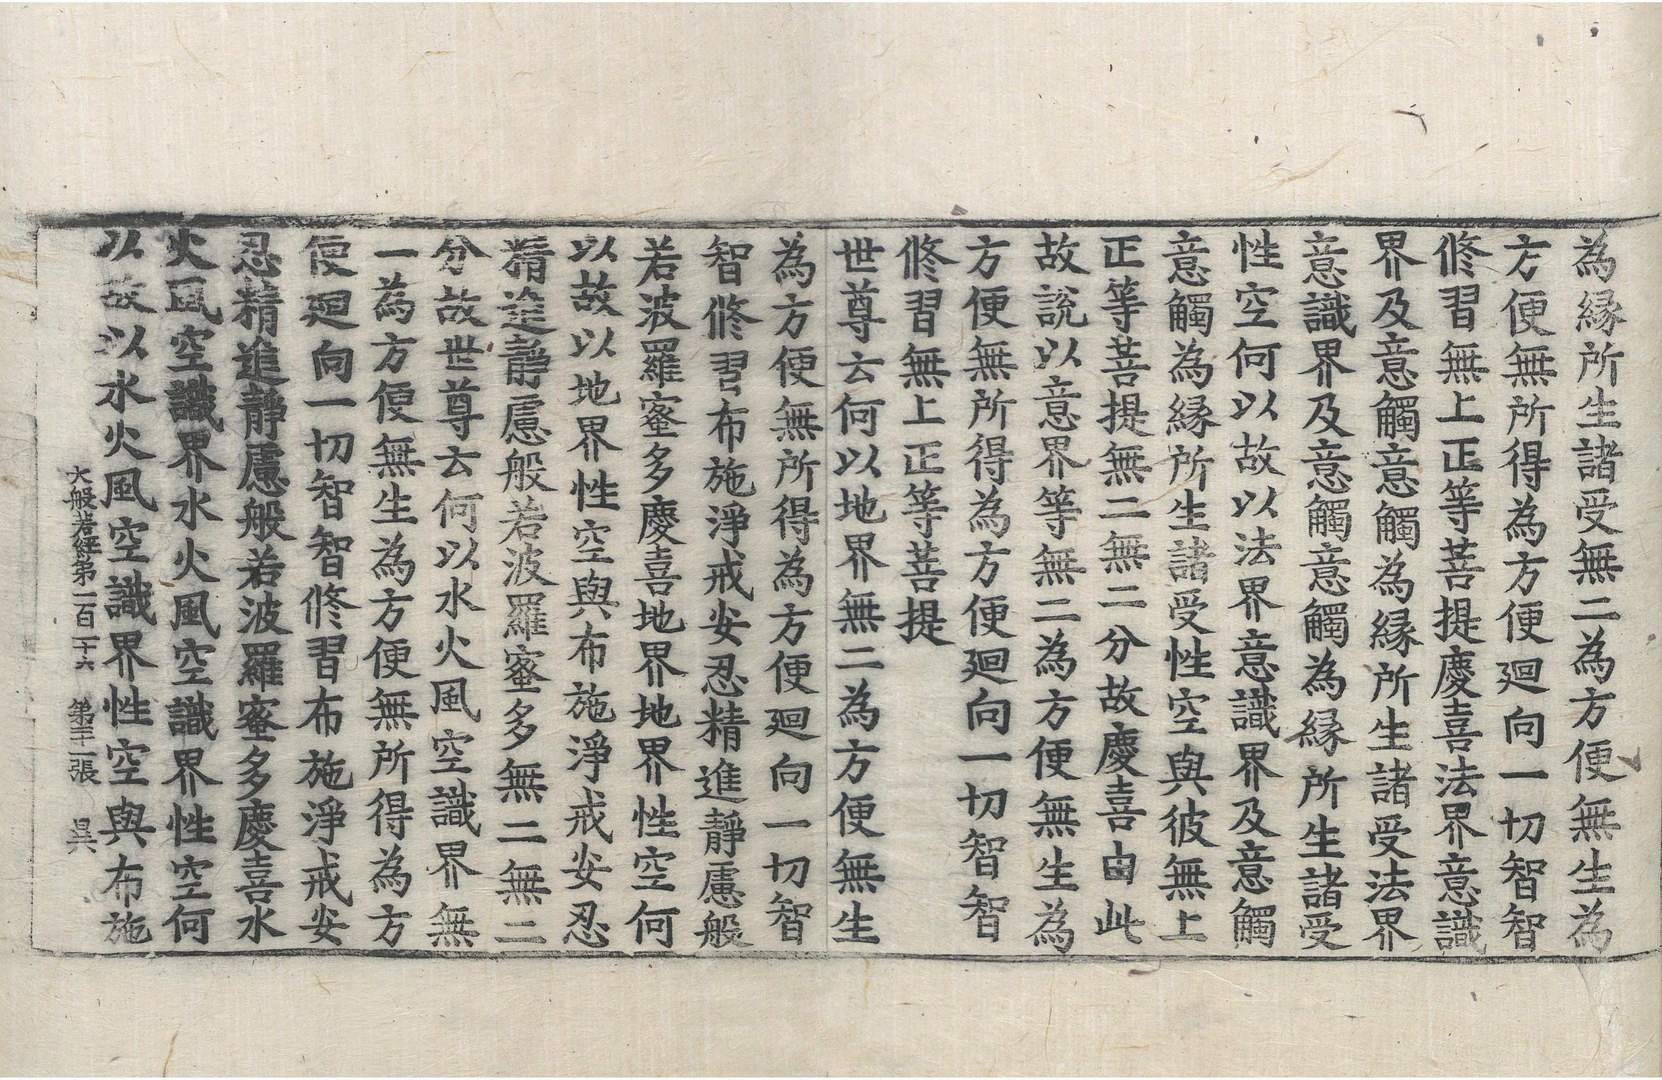 為緣所生諸受無二為方便無生為
方便無所得為方便廻向一切智智
修習無上正等菩提慶喜法界意識
界及意觸意觸為緣所生諸受法界
意識界及意觸意觸為緣所生諸受
性空何以故以法界意識界及意觸
意觸為緣所生諸受性空與彼無上
正等菩提無二無二分故慶喜由此
故說以意界等無二為方便無生為
方便無所得為方便廻向一切智智
修習無上正等菩提
世尊云何以地界無二為方便無生
為方便無所得為方便廻向一切智
智修習布施淨戒安忍精進靜慮般
若波羅蜜多慶喜地界地界性空何
以故以地界性空與布施淨戒安忍
精進靜慮般若波羅蜜多無二無二
分故世尊云何以水火風空識界無
二為方便無生為方便無所得為方
便廻向一切智智修習布施淨戒安
忍精進靜慮般若波羅蜜多慶喜水
火風空識界水火風空識界性空何
以故以水火風空識界性空與布施
大般若經第一百二十六 第二十一張 昃